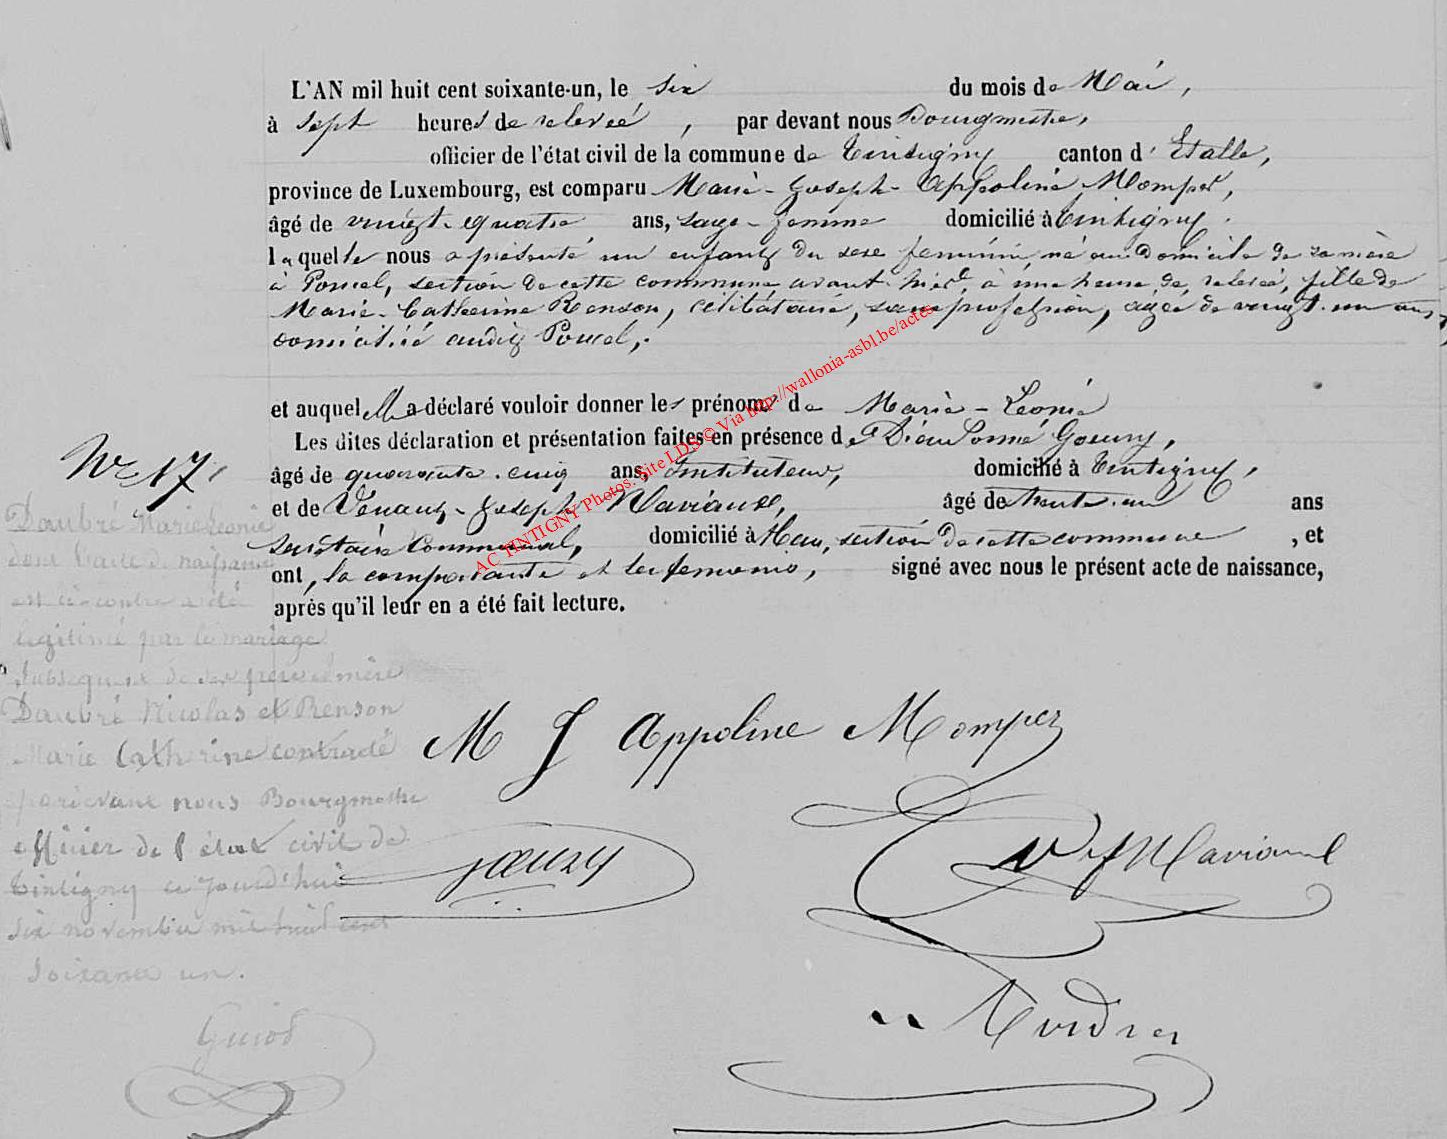 L'AN mil huit cent soixante-un, le six du mois de Mai,
à sept heures de relevée, par devant nous Bourgmestre,
officier de l'état civil de la commune de Tintigny canton d'Etalle,
province de Luxembourg, est comparu Marie-Joseph-Appoline Momper,
âgé de vingt-quatre ans, sage-femme domicilié à Tintigny.
laquelle nous a présenté un enfant du sexe féminin, né au domicile de sa mère
à Poncel, section de cette commune, avant-hier, à une heure de relevée, fille de
Marie-Catherine Renson, célibataire, sans profession, agée de vingt-un ans,
domiciliée audit Poncel,
et auquel elle a déclaré vouloir donner les prénoms de Marie-Léonie
Les dites déclaration et présentation faites en présence de Dieudonné Goury,
âgé de quarante-cinq ans, Instituteur, domicilié à Tintigny,
et de Venant-Joseph Naviaux, âgé de trente-un ans
secrétaire Communal, domicilié à Han, section de cette commune, et
ont, la comparante et les témoins, signé avec nous le présent acte de naissance,
après qu'il leur en a été fait lecture.
N° 17,
Daubré Marie Leonie
dont l'acte de naissance
est ci-contre a été
legitimé par le mariage
subsequent de ses pere et mère
Daubré Nicolas et Renson
Marie Catherine contracté
pardevant nous Bourgmestre
officier de l'état civil de
Tintigny ce jourd'hui
six novembre mil huit cent
soixante un.
Guiot
M J Appoline Momper
Goury
V J Naviaux
AC TINTIGNY Photos. Site LDS © Via http://wallonia-asbl.be/actes